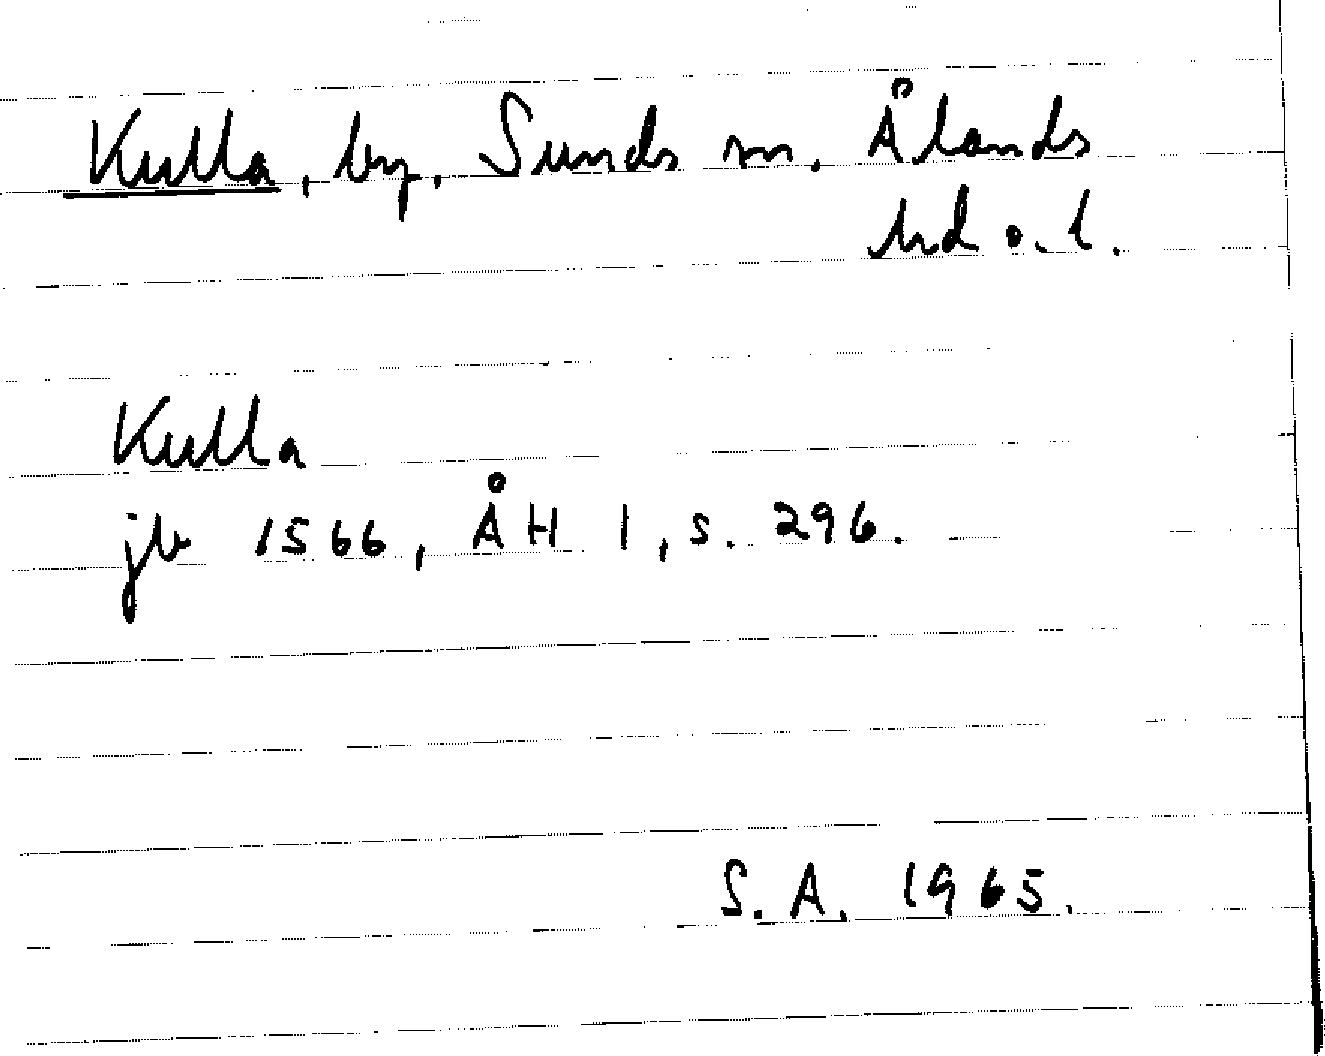 Kulla, by, Sunds sn, Ålands
hd o. l.
Kulla
jb 1566, ÅH 1, s. 296.
S. A. 1965.